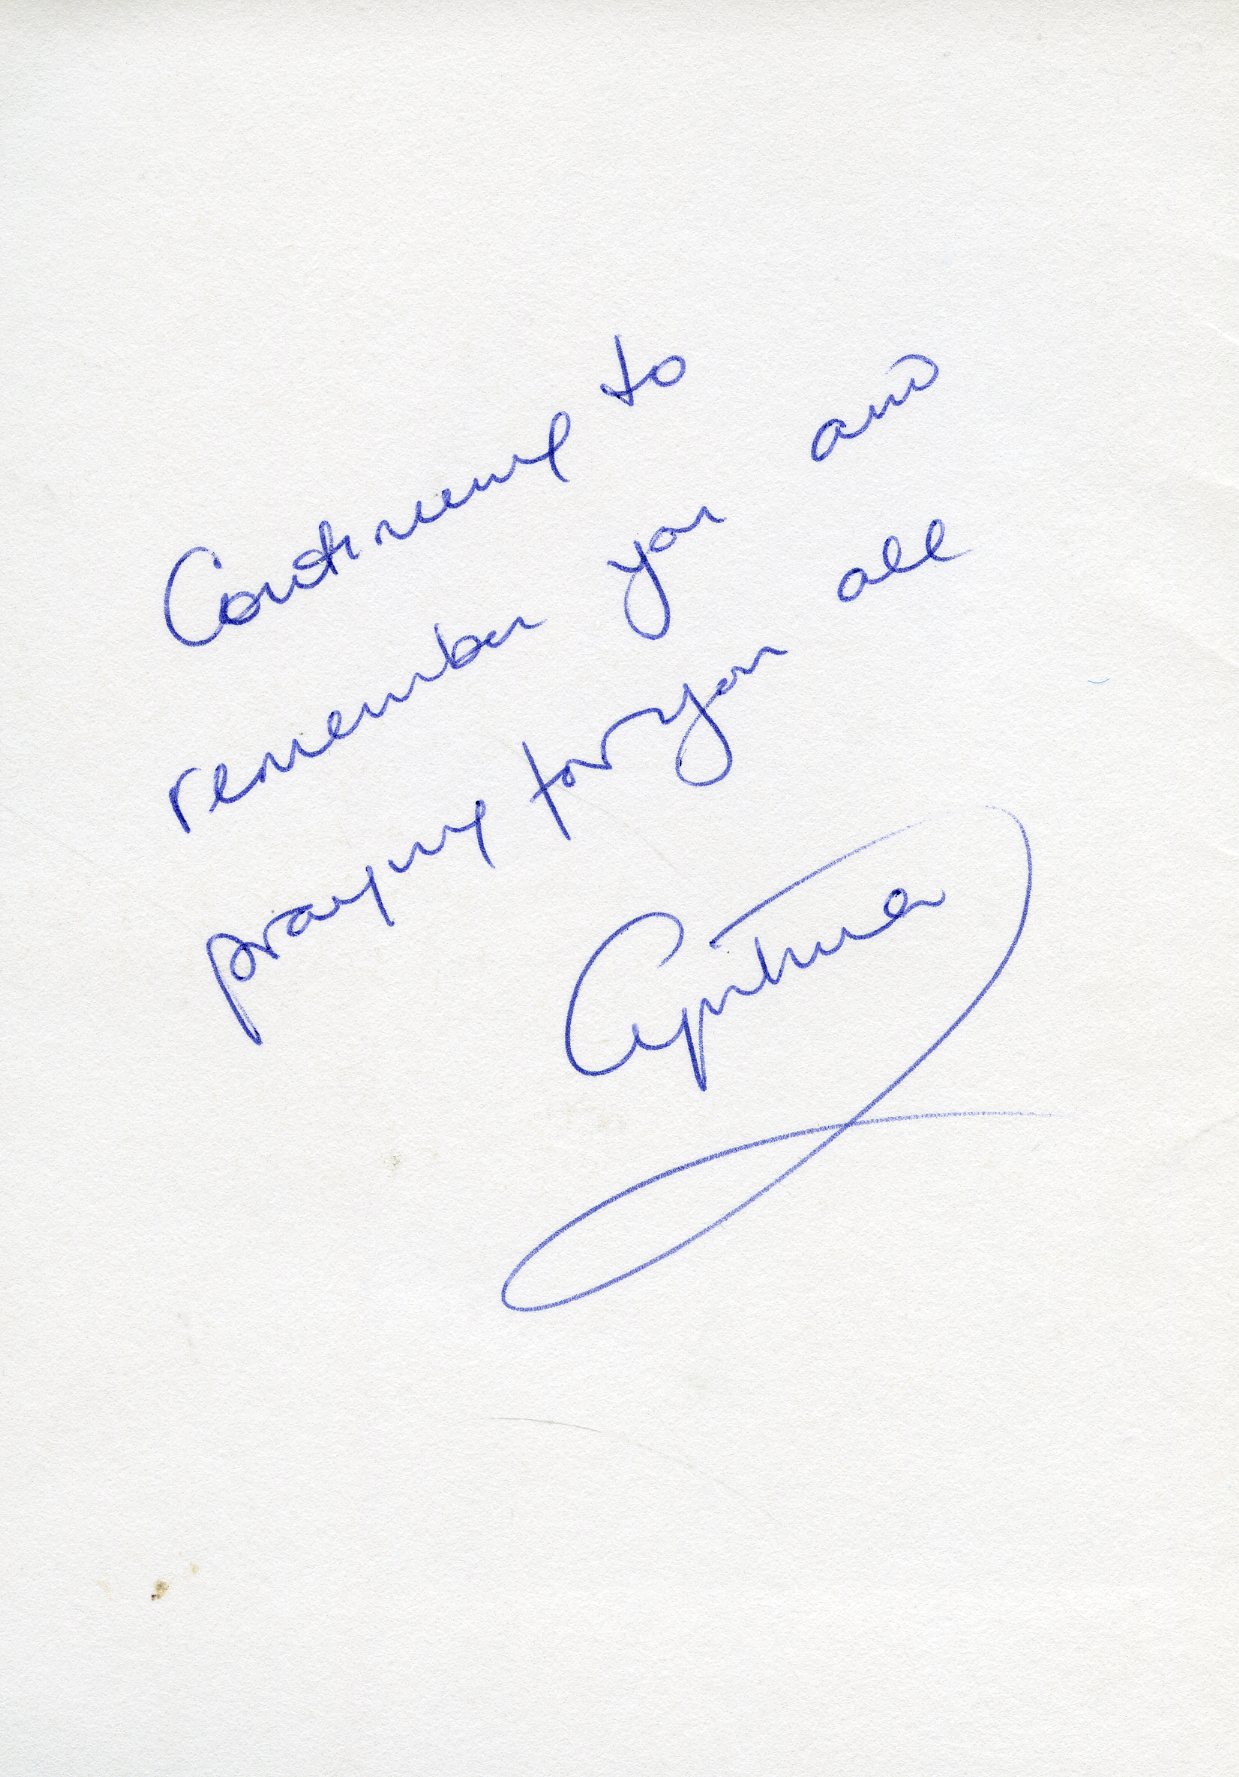 Continuing to
remember you and
praying for you all
Cynthia